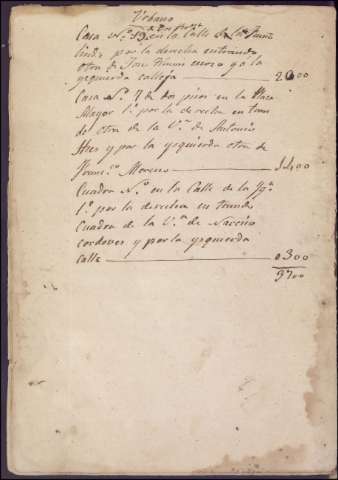 Urbano
Casa N.º 13 en la Calle de
lind.ª por la derecha entrando
otra de Jose y á la
yzquierda calleja 2000
Casa N.º 7 de dos pisos en la Plaza
Mayor 1.º por la derecha entran
do otra de la V.ª de Antonio
y por la yzquierda otra de
Fran.co Moreno 1400
Cuadra N.º en la Calle de la
1.º por la derecha entrando
Cuadra de la V.ª de Narciso
cordoves y por la yzquierda
Calle 0300
3700